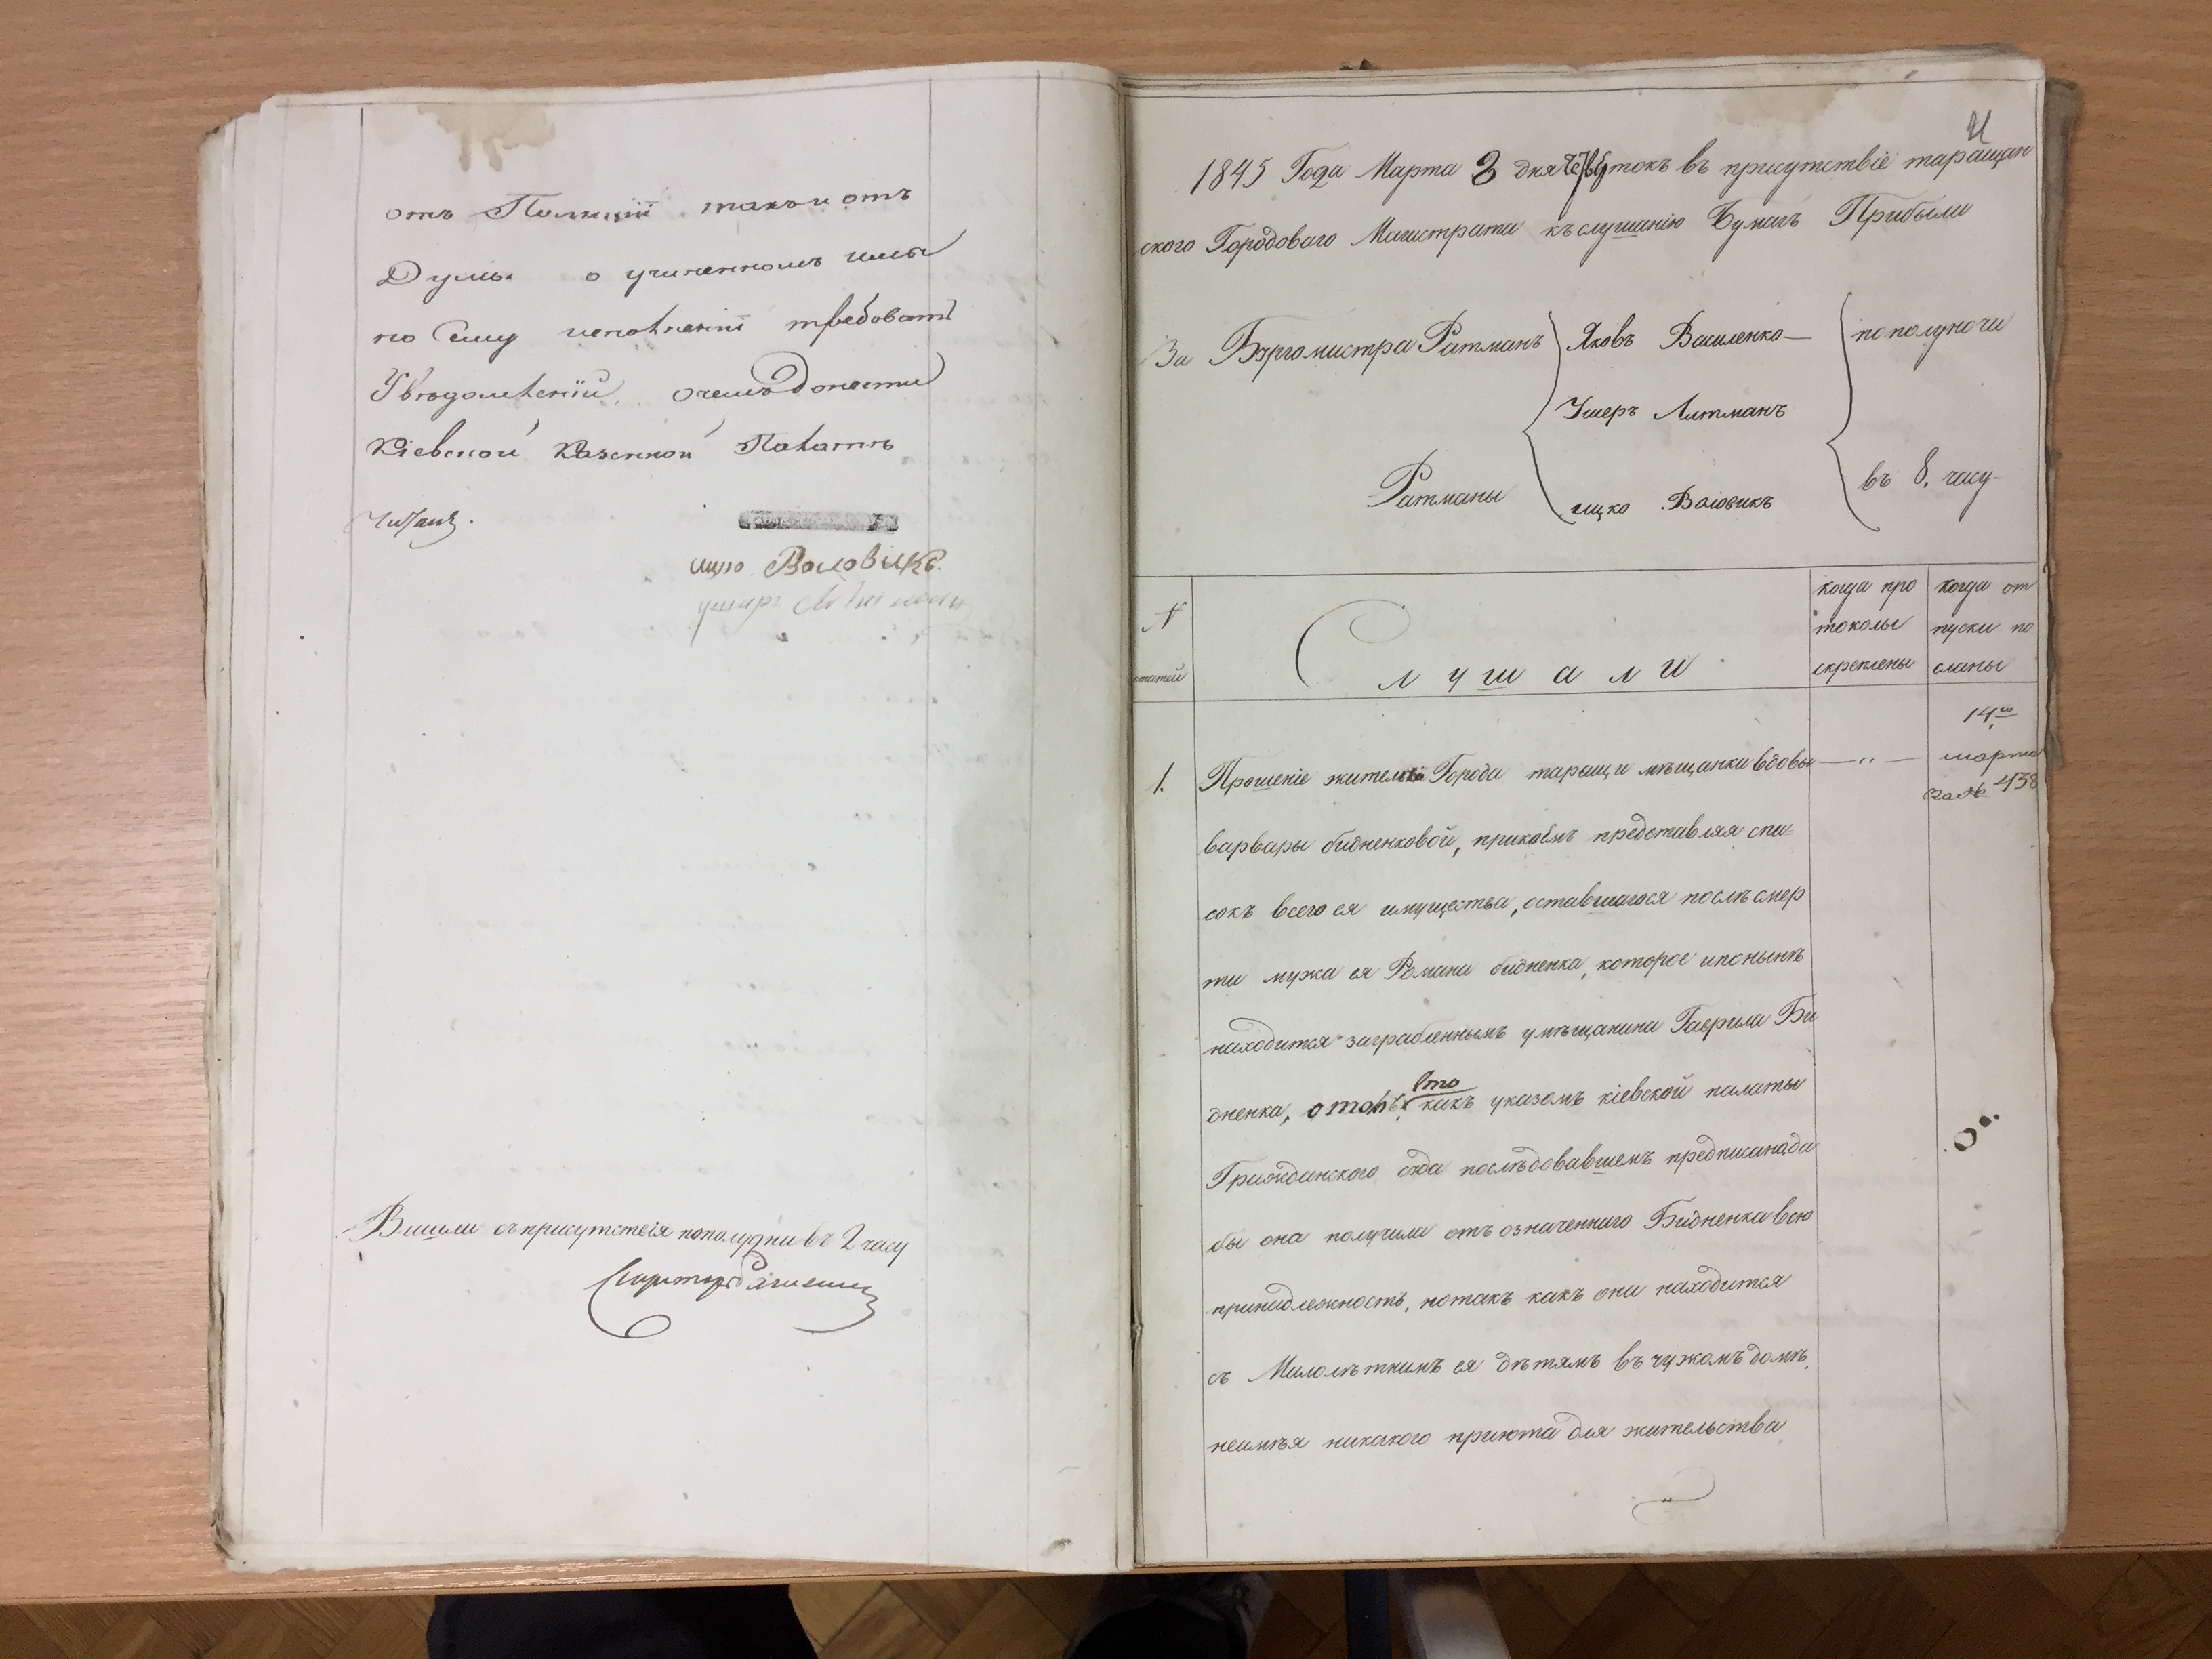 отъ Полиціи такъ и отъ
Думы о учиненномъ имы
по сему исполненіи требовать
Увѣдомленій, о чемъ донести
Кіевской Казенной Палатѣ
Читалъ
ицко Воловикъ
ушеръ
Вишли съ присутствія пополудни въ 2 часу
1845 Года Марта 8 дня въ присутствіе таращан
ского Городоваго Магистрата къ слушанію Бумагъ Прибыли
За Бургомистра Ратманъ Яковъ Василенко пополуночи
Ушеръ Алтманъ
Ратманы ицко Воловикъ въ 8. часу
N статей
Слушали
когда про токолы скреплены
когда от пуски по сланы
14го
марта
за № 438
1. Прошеніе жителки Города таращи мѣщанки вдовы — " —
варвары бидненковой, при коемъ представляя спи
сокъ всего ея имущества, оставшагося послѣ смер
ти мужа ея Романа бидненка, которое и понынѣ
находится заграбленнымъ у мѣщанина Гаврила Би
дненка, о томъ, что какъ указомъ кіевской палаты
Гражданского суда послѣдовавшемъ предписано, да
бы она получила отъ означенного Бидненка всю
принадлежность, но такъ какъ она находится
съ Малолѣтнимъ ея дѣтямъ въ чужомъ домѣ,
неимѣя никакого приюта для жительства